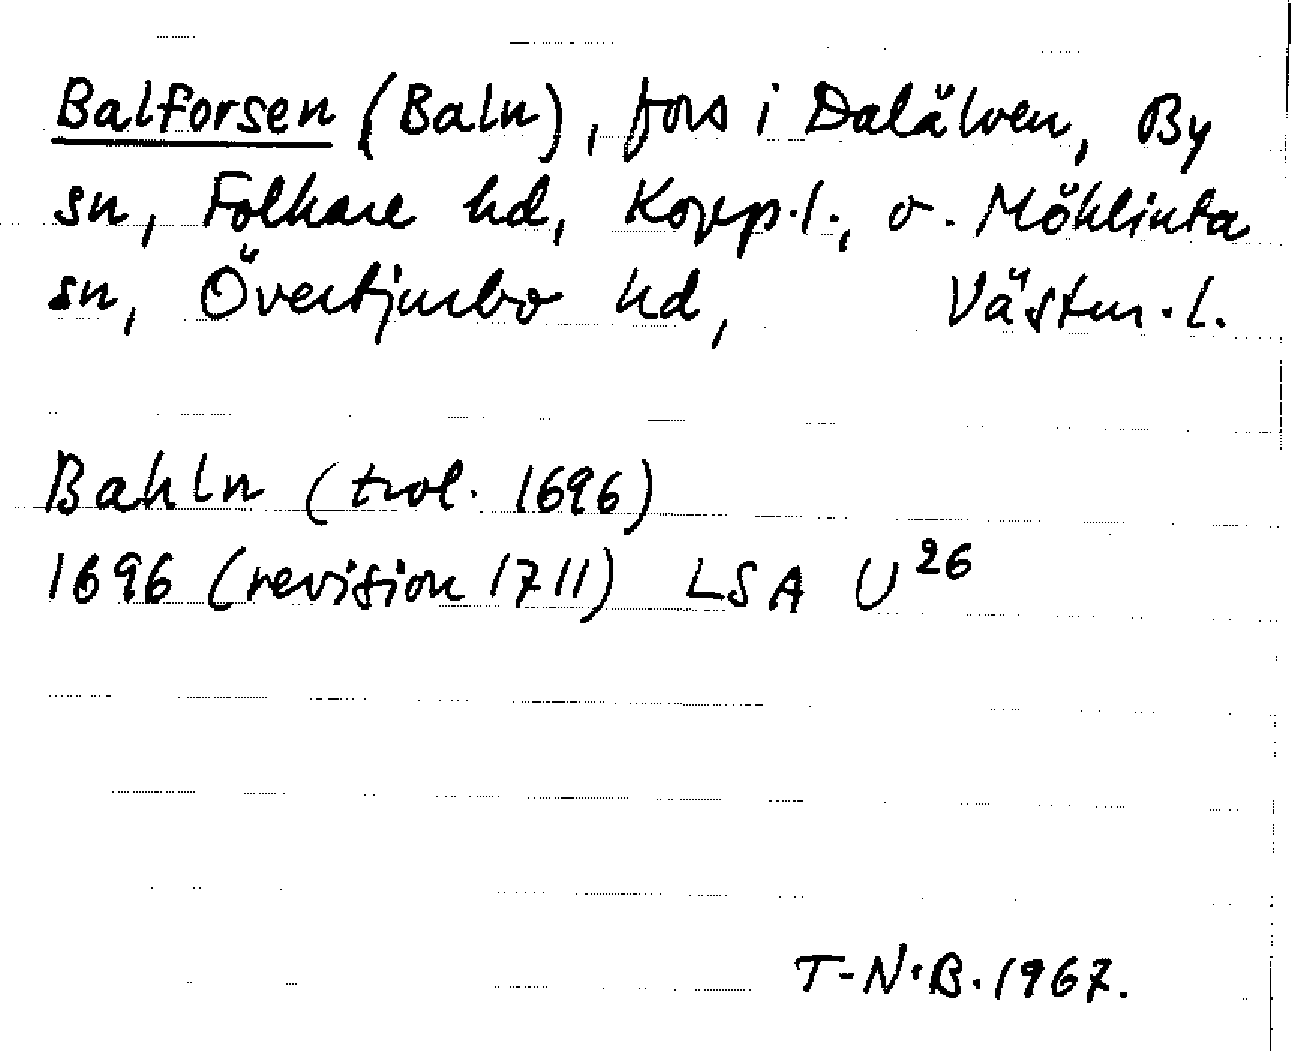 Balforsen (Baln), fors i Dalälven, By
sn, Folkare hd, Kopp.l., o. Möklinta
sn, Övertjurbo hd, Västm.l.
Bahln (trol. 1696)
1696 (revision 1711) LSA U26
T-N.B. 1967.